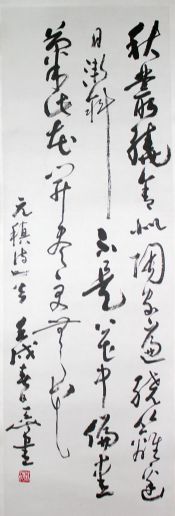 秋叢繞舍似陶家遍繞籬邊
日漸斜不是花中偏愛
菊此花開盡更無花
元稹詩一首 壬戌春日 書